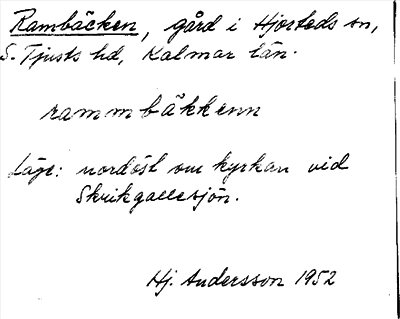 Rambäcken, gård i Hjorteds sn,
S. Tjusts hd, Kalmar län.
rammbäkkenn
Läge: nordöst om kyrkan vid
Skrikgallesjön.
Hj. Andersson 1952